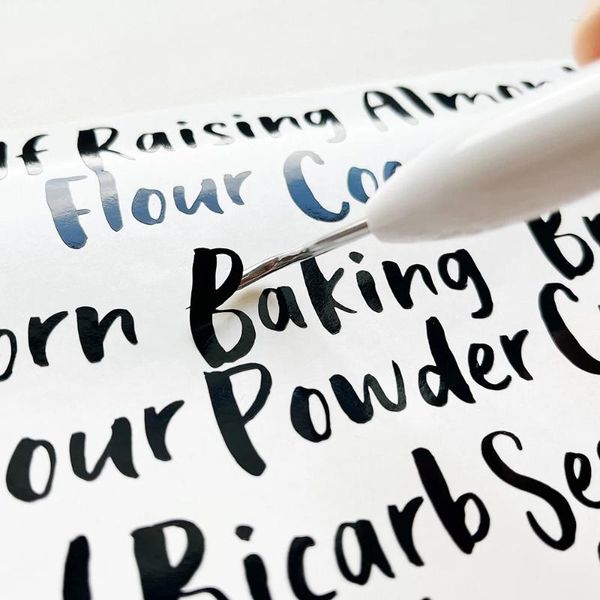 lf Raising Almon
Flour Coc
orn Baking Br
our Powder C
Bicarb Se